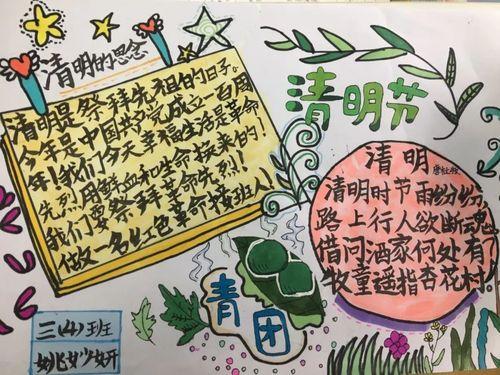 清明的思念
清明是祭拜先祖的日子。
今年是中国共产党成立一百周
年!我们今天幸福生活是革命
先烈用鲜血和生命换来的!
我们要祭拜革命先烈!
做一名红色革命接班人!
清明节
清明
清明时节雨纷纷,
路上行人欲断魂。
借问酒家何处有?
牧童遥指杏花村。
青团
三(4)班
姚妙妍